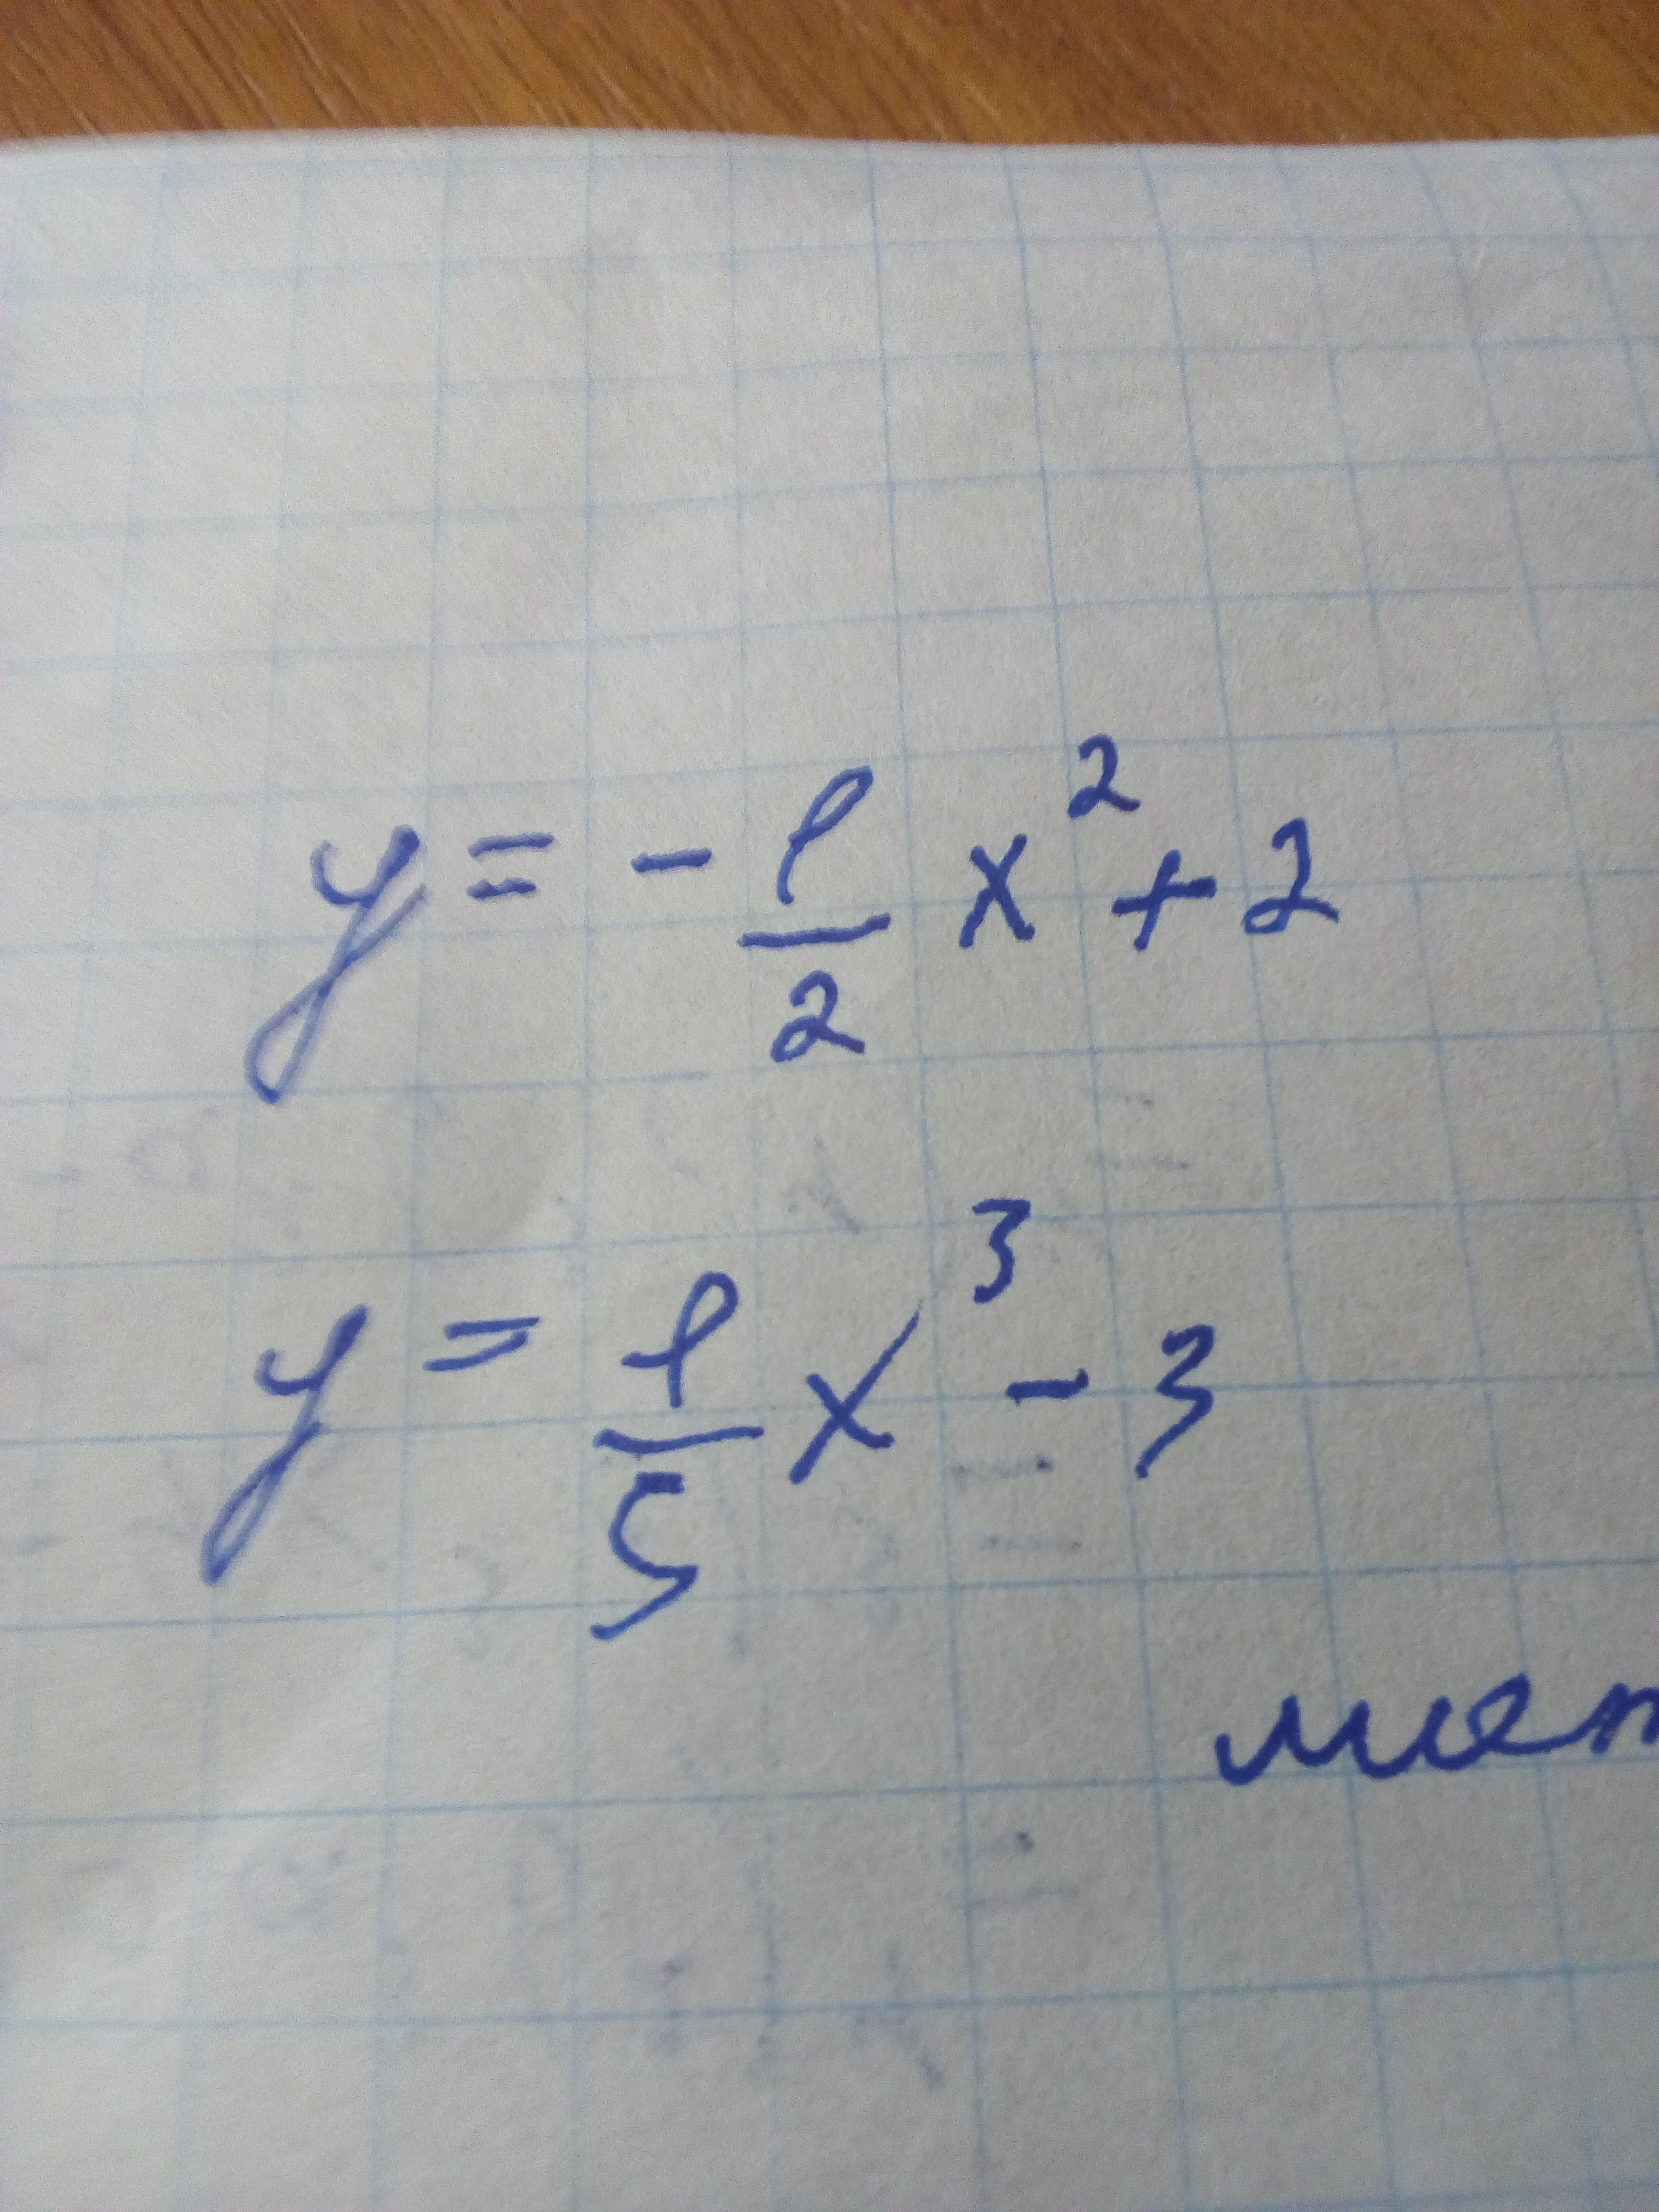 y = - 1/2 x² + 2
y = 1/5 x³ - 3